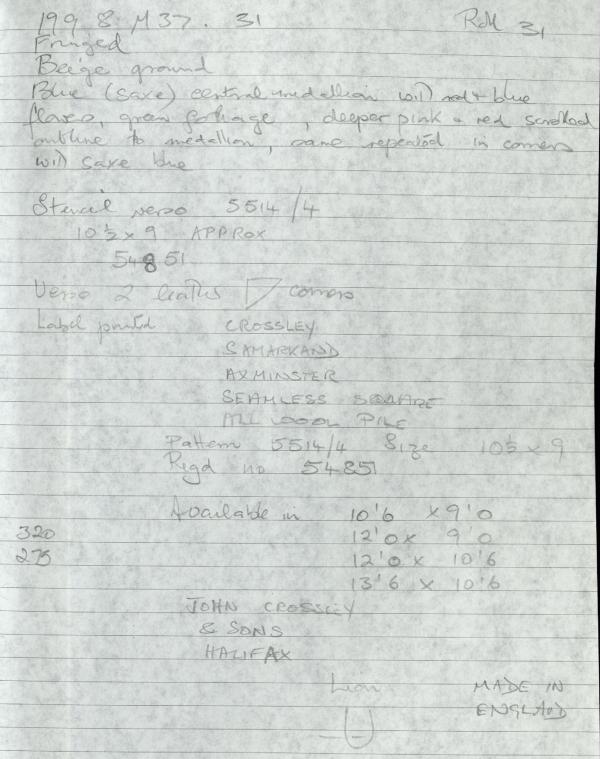 199 8 M37. 31 Roll 31
Fringed
Beige ground
Blue (saxe) central medallion with red + blue
flowers, green foliage, deeper pink + red scrolled
outline to medallion, same repeated in corners
with saxe blue
Stencil verso 5514/4
10½ x 9 APPROX
54851
Verso 2 corners
Label printed CROSSLEY
SAMARKAND
AXMINSTER
SEAMLESS SQUARE
ALL WOOL PILE
Pattern 5514/4 Size 10½ x 9
Regd no 54851
Available in 10'6 x 9'0
320 12'0 x 9 0
275 12'0 x 10'6
13'6 x 10'6
JOHN CROSSLEY
& SONS
HALIFAX
Lion MADE IN
ENGLAND